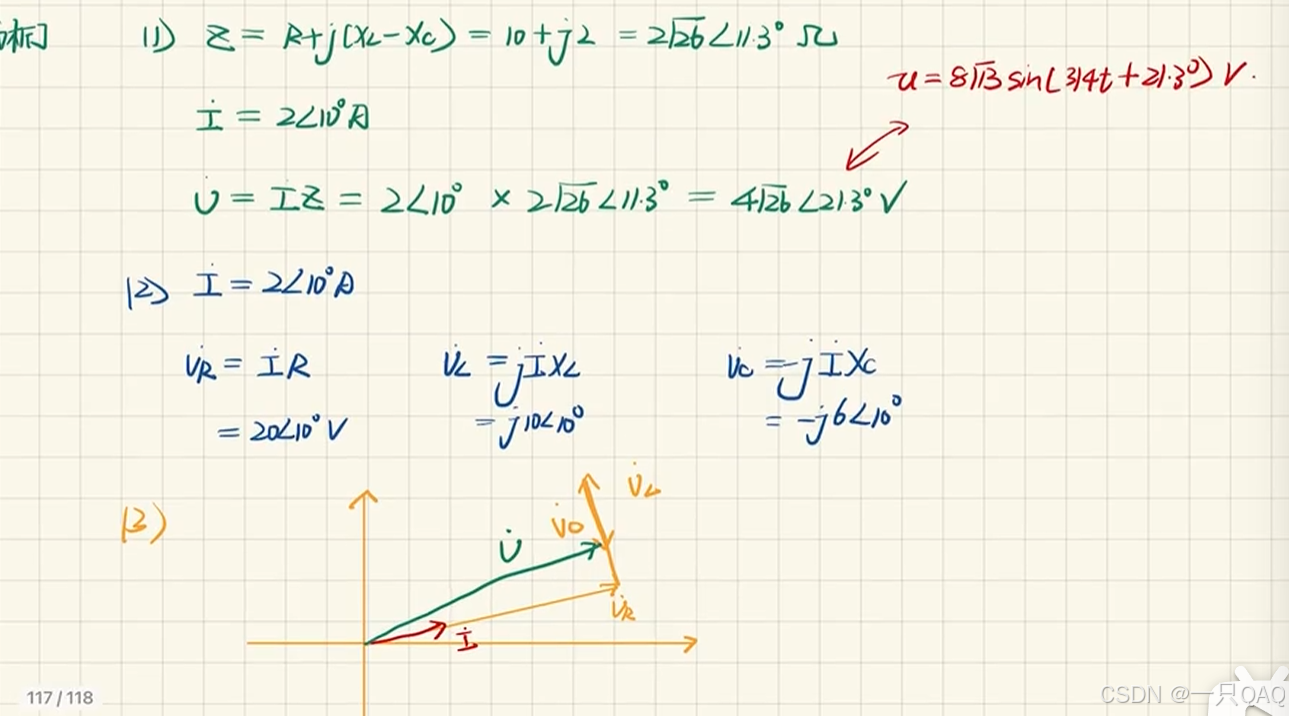 析] (1) Z = R+j(XL-XC) = 10+j2 = 2√26∠11.3° Ω
u = 8√13 sin(314t+21.3°) V.
İ = 2∠10°A
U̇ = İZ = 2∠10° × 2√26∠11.3° = 4√26∠21.3° V
(2) İ = 2∠10°A
U̇R = İR U̇L = jİXL U̇C = -jİXC
= 20∠10° V = j10∠10° = -j6∠10°
(3)
U̇L
U̇
U̇R
İ
117 / 118
CSDN @一只QAQ